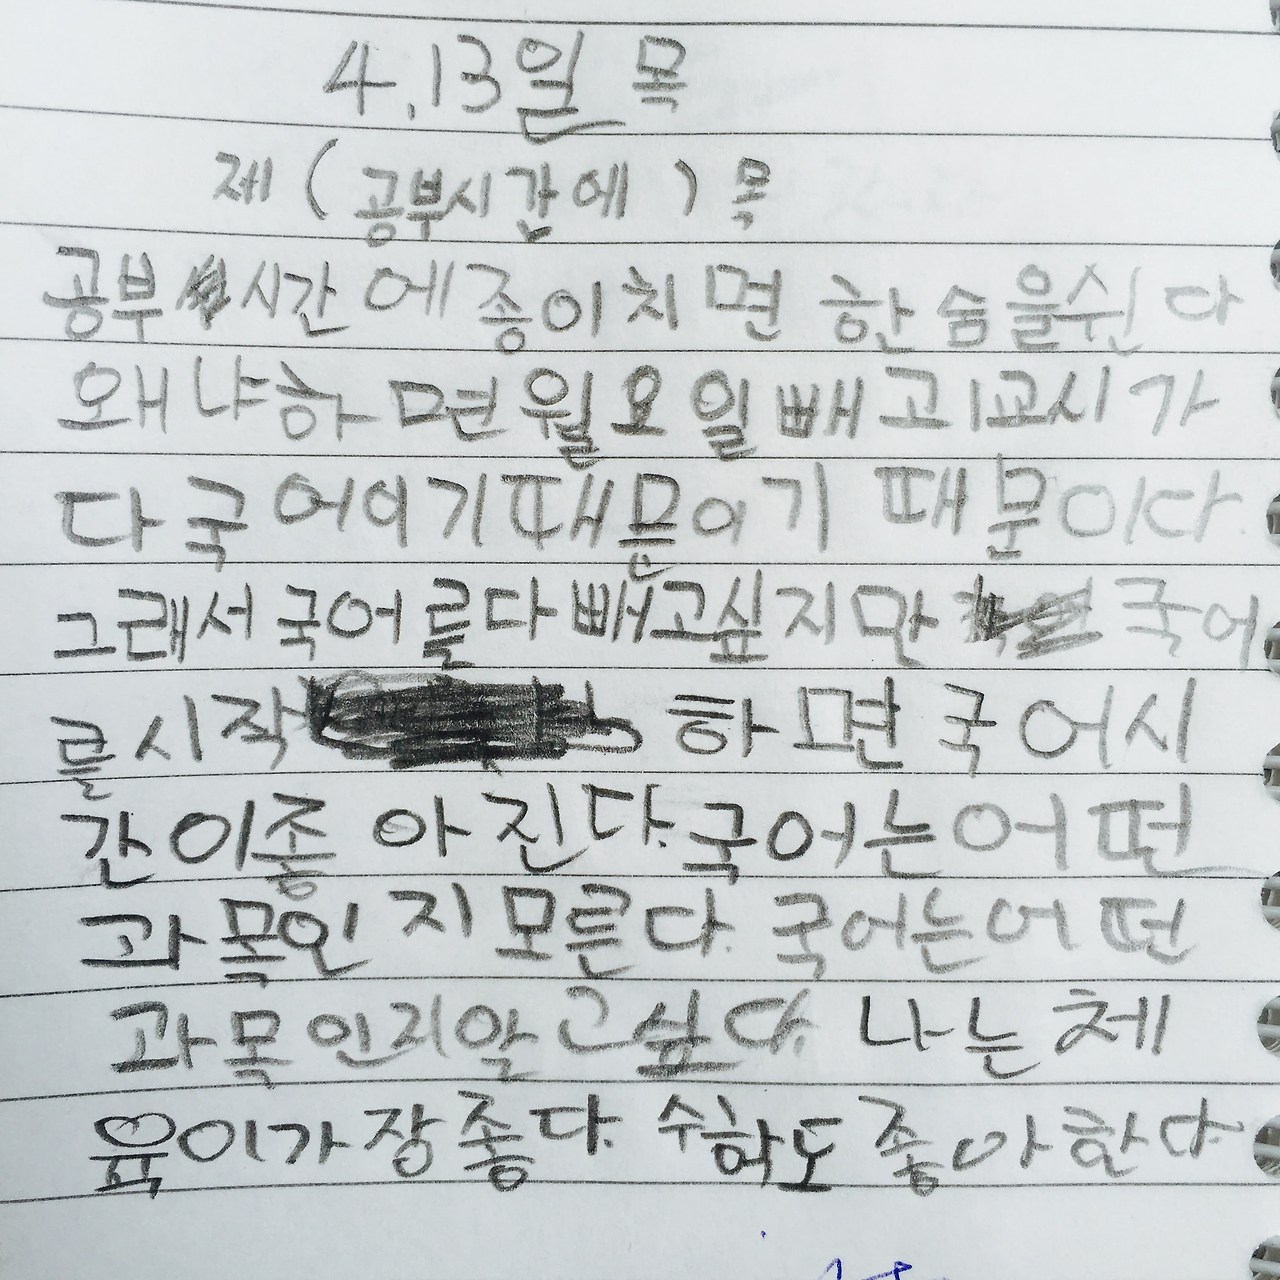 4.13일 목
제 ( 공부시간에 ) 목
공부 시간에 종이치면 한숨을쉰다
왜냐하면월요일빼고1교시가
다국어이기때문이기 때문이다.
그래서 국어를다빼고싶지만 국어
를시작 하면국어시
간이좋아진다. 국어는어떤
과목인지모른다. 국어는어떤
과목인지알고싶다. 나는체
육이가장좋다. 수학도좋아한다.